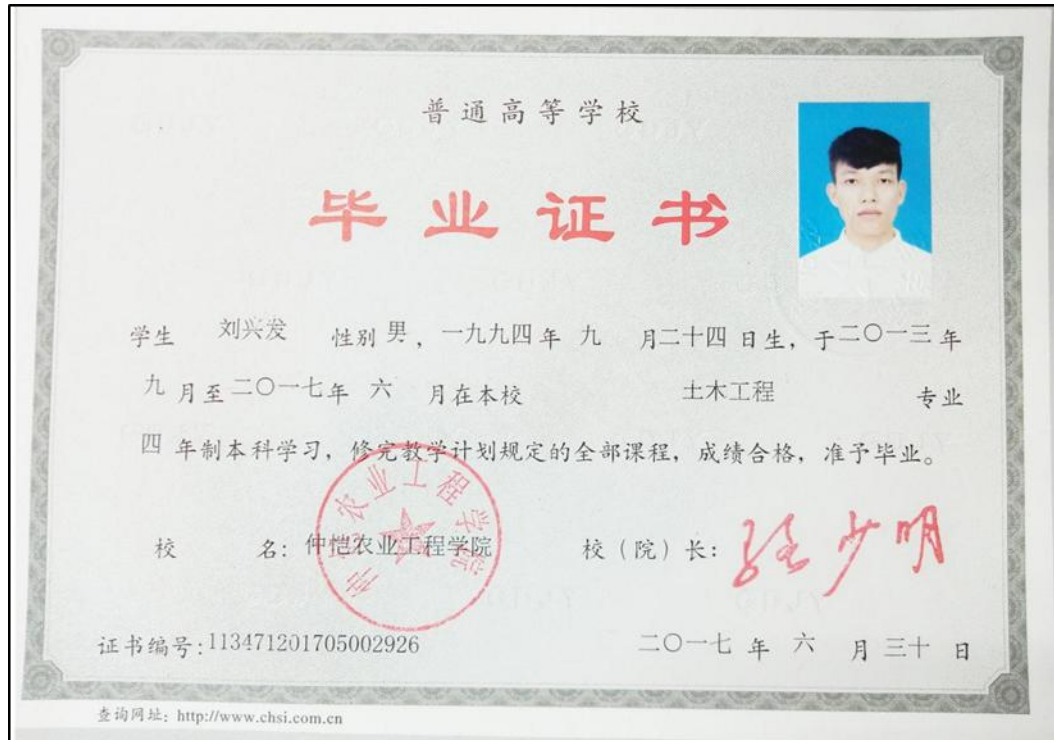 普通高等学校
毕业证书
学生 刘兴发 性别 男，一九九四年 九 月二十四日生，于二〇一三年
九 月至二〇一七年 六 月在本校 土木工程 专业
四 年制本科学习，修完教学计划规定的全部课程，成绩合格，准予毕业。
校 名：仲恺农业工程学院 校（院）长：骆少明
仲恺农业工程学院
证书编号:113471201705002926 二〇一七 年 六 月 三十 日
查询网址：http://www.chsi.com.cn